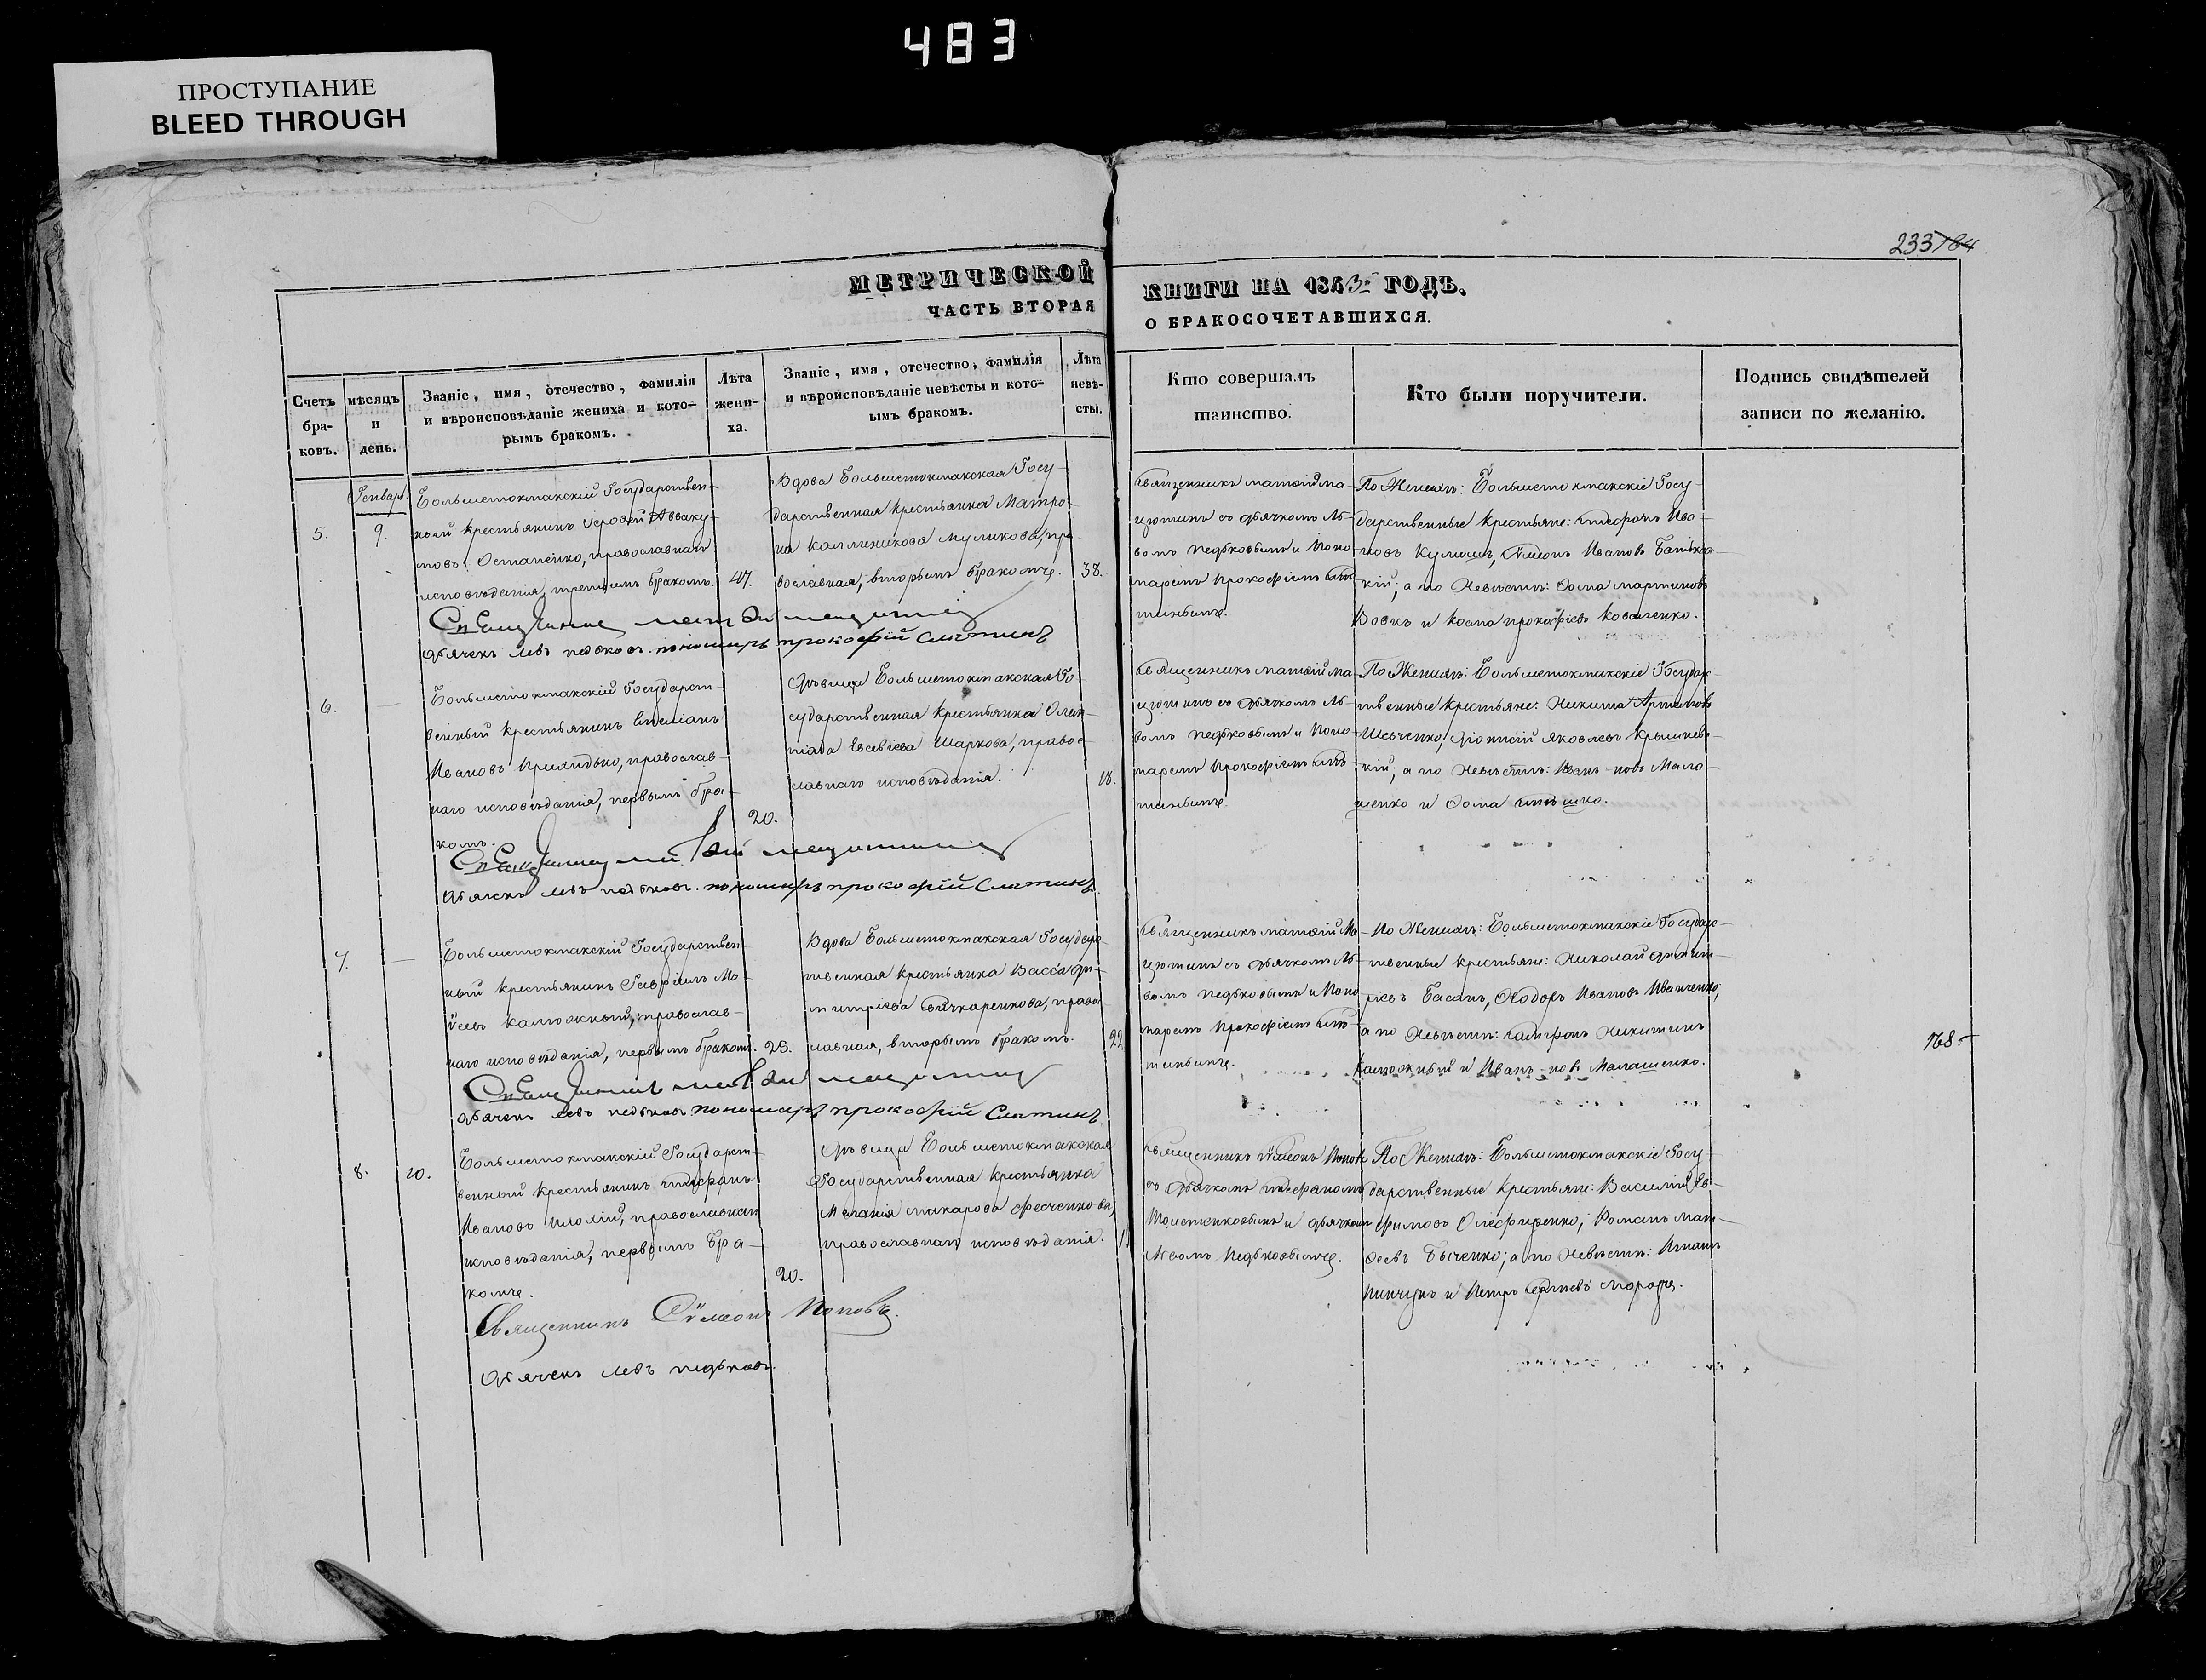 483
ПРОСТУПАНИЕ
BLEED THROUGH
233 184
МЕТРИЧЕСКОЙ
ЧАСТЬ ВТОРАЯ
КНИГИ НА 1843: ГОДЪ.
О БРАКОСОЧЕТАВШИХСЯ.
Счетъ бра-ковъ.
мѣсяцъ и день.
Званіе, имя, отечество, фамилія
и вѣроисповѣданіе жениха и кото-
рымъ бракомъ.
Лѣта жени-ха.
Званіе, имя, отечество, фамилія
и вѣроисповѣданіе невѣсты и кото-
ымъ бракомъ.
Лѣта невѣ-сты.
Кто совершалъ
таинство.
Кто были поручители.
Подпись свидѣтелей
записи по желанію.
Генваръ
5.
9.
Большетокмакскій Государствен-
ный крестьянинъ Авваку-
мовъ Остапенко, православнаго
исповѣданія, третимъ бракомъ.
47.
Вдова Большетокмакская Госу-
дарственная крестьянка Матро-
на Каллиникова Муликова, пра-
вославная, вторымъ бракомъ.
38.
Священникъ Матѳій Ма-
цютинъ съ дьячкомъ Ль-
вомъ Педьковымъ и Поно-
маремъ Прокофіемъ
По Женихѣ: Большетокмакскіе Госу-
дарственные крестьяне: Стефанъ Ива-
новъ Кулишъ, Сѵмеонъ Ивановъ
кій; а по Невѣстѣ: Ѳома Мартиновъ
Вовкъ и Косма Прокофіевъ Коваленко.
Дьячекъ Левъ Педьковъ. пономарь прокофій
6.
Большетокмакскій Государст-
венный крестьянинъ Емеліанъ
Ивановъ Прихидько, православ-
наго исповѣданія, первымъ бра-
комъ.
20.
Дѣвица Большетокмакская Го-
сударственная крестьянка Олим-
піада Евсевіева Шаркова, правос-
лавнаго исповѣданія.
18.
Священникъ Матѳій Ма-
цютинъ съ дьячкомъ Ль-
вомъ Педьковымъ и Поно-
маремъ Прокофіемъ
По Женихѣ: Большетокмакскіе Государ-
ственные крестьяне: Никита
Шевченко, Діонисій Яковлевъ
кій; а по Невѣстѣ: Иванъ Мала-
шенко и Ѳома
Дьячекъ Левъ Педьковъ. пономарь прокофій
7.
Большетокмакскій Государствен-
ный крестьянинъ Гавріилъ Мо-
ѵсеевъ Калюжный, православ-
наго исповѣданія, первымъ бракомъ.
23.
Вдова Большетокмакская Государс-
твенная крестьянка Васса Ди-
митріева православная, вторымъ бракомъ.
22
Священникъ Матѳій Ма-
цютинъ съ дьячкомъ Ль-
вомъ Педьковымъ и Поно-
маремъ Прокофіемъ
По Женихѣ: Большетокмакскіе Государ-
ственные крестьяне: Николай Димит-
ріевъ Басанъ, Ѳеодоръ Ивановъ Иванченко,
а по Невѣстѣ: Никитинъ
Калюжный и Иванъ Малашенко.
168.
Дьячекъ Левъ Педьковъ пономарь прокофій
8.
20.
Большетокмакскій Государст-
венный крестьянинъ Стефанъ
Ивановъ Плохій, православнаго
исповѣданія, первымъ бра-
комъ.
20.
Дѣвица Большетокмакская
Государственная крестьянка
Меланія Макарова Фесченкова,
православнаго исповѣданія.
Священникъ Сѵмеонъ Поповъ
съ дьячкомъ Стефаномъ
и дьячкомъ
Львомъ Педьковымъ.
По Женихѣ: Большетокмакскіе Госу-
дарственные крестьяне: Василій Еѳ-
фимовъ Олефиренко, Романъ Мат-
ѳеевъ Быченко; а по Невѣстѣ: Игнатъ
Пинчукъ и Петръ
Священникъ Сѵмеонъ Поповъ.
Дьячекъ Левъ Педьковъ.